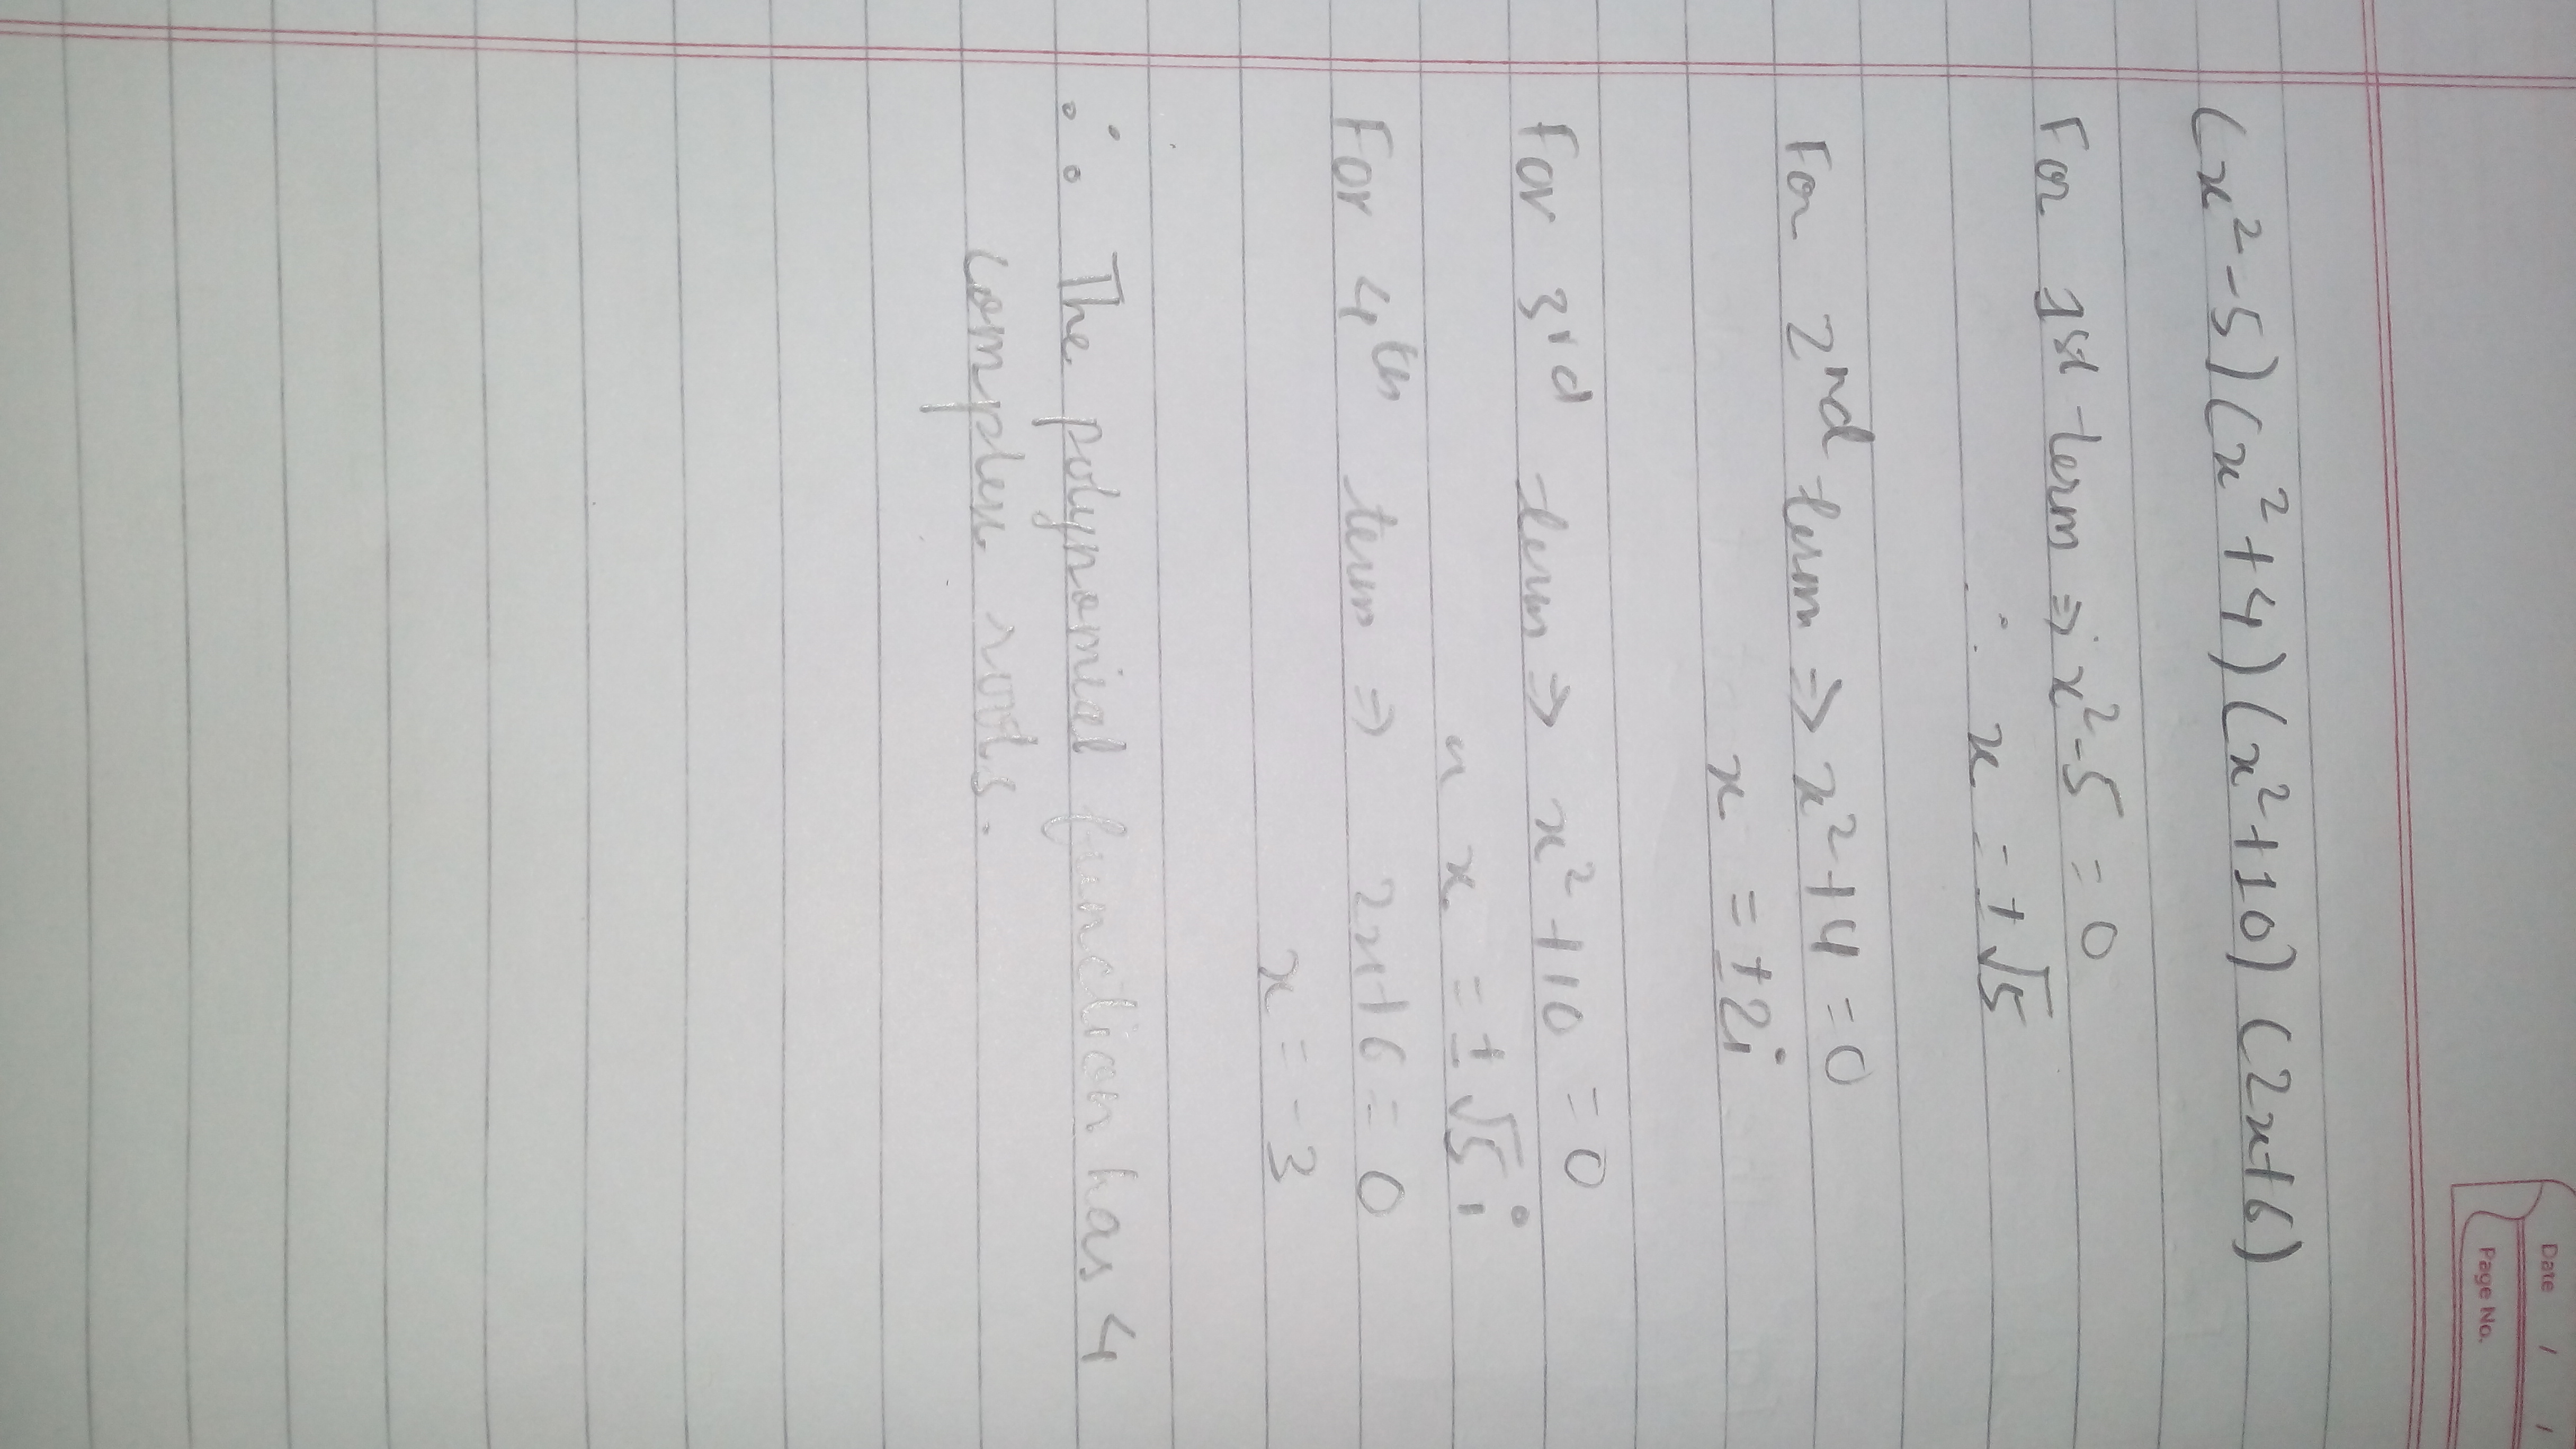 Date / /
Page No.
(x²-5)(x²+4)(x²+10)(2x+6)
For 1st term ⇒ x²-5 = 0
∴ x = ±√5
For 2nd term ⇒ x²+4 = 0
x = ±2i
For 3rd term ⇒ x²+10 = 0
x = ±√5 i
For 4th term ⇒ 2x+6 = 0
x = -3
∴ The polynomial function has 4
complex roots.